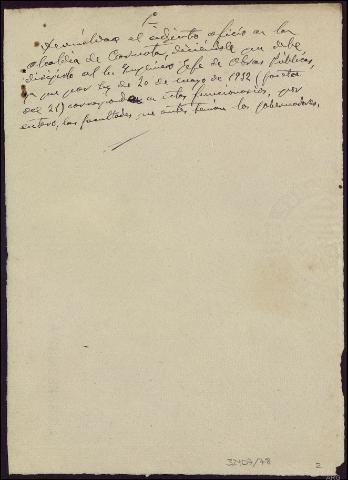 1º
adjunto oficio en la
alcaldia de Carnota, diciéndole que debe
dirigirlo al Sr Ingeniero Jefe de Obras Públicas,
ya que por ley de 20 de mayo de 1932 (Gaceta
del 21) corresponde a estos funcionarios, por
entero, las facultades que antes tenian los gobernadores.
2
ARG